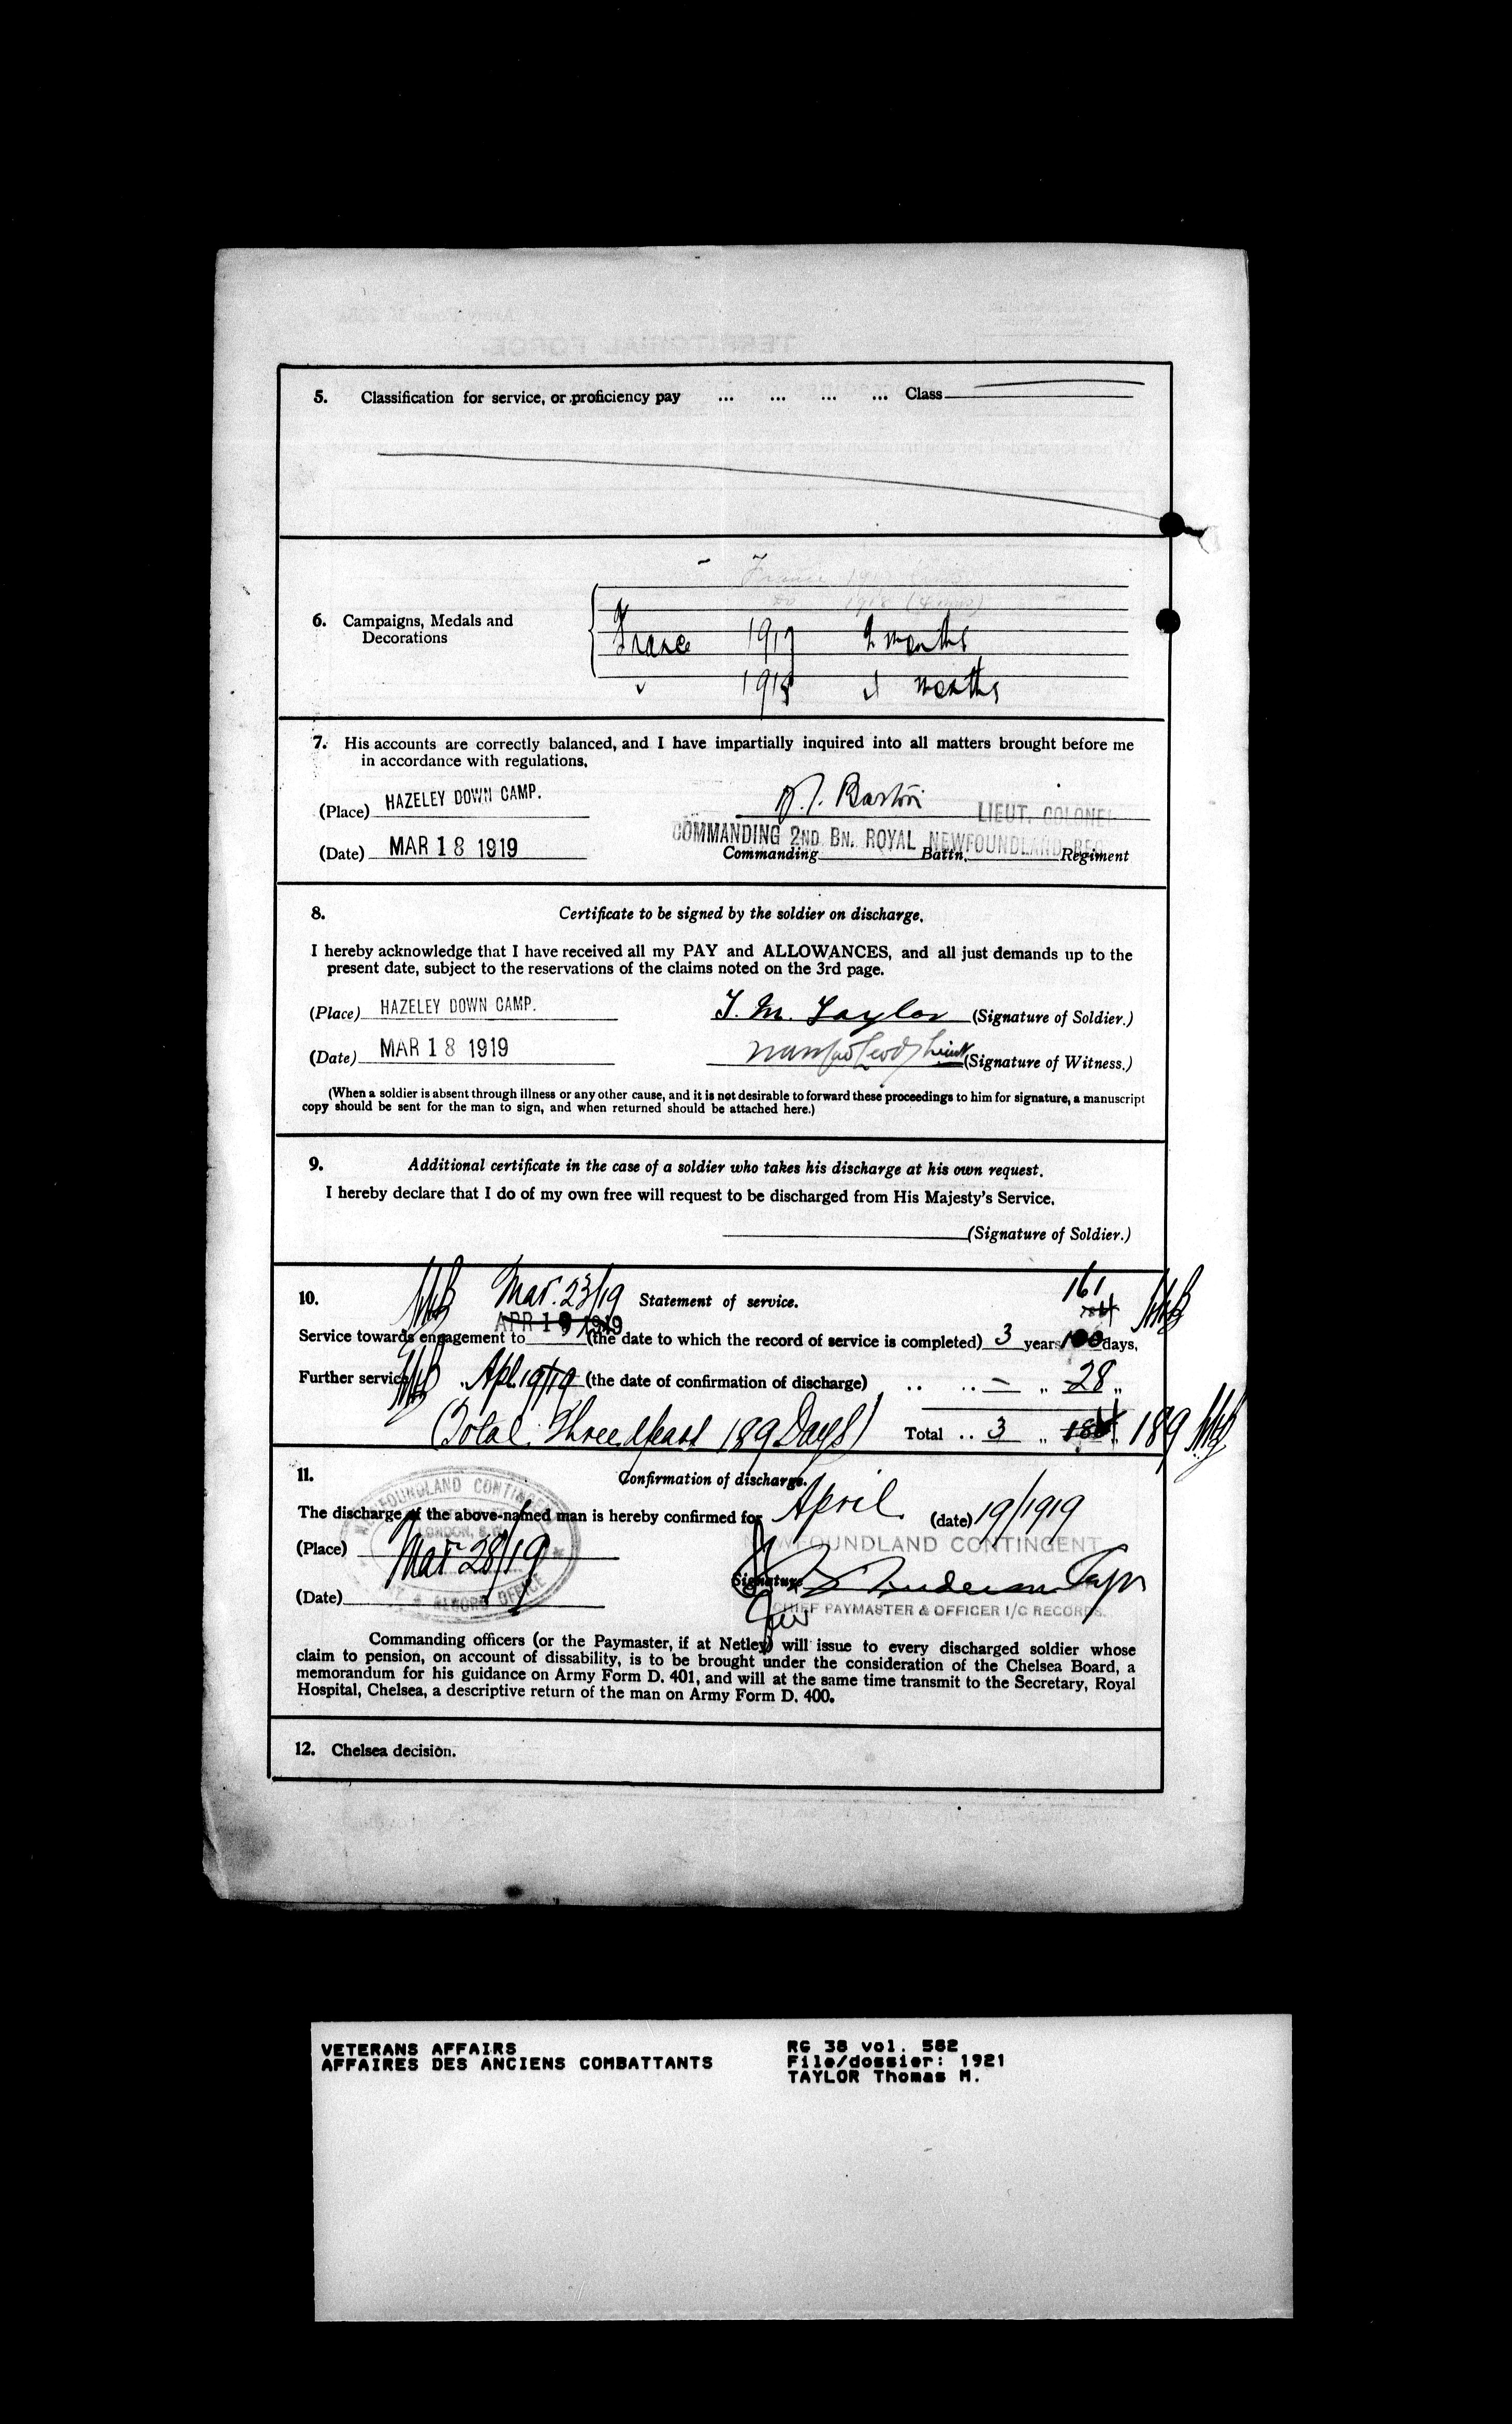 5. Classification for service, or proficiency pay ... ... ... ... Class
France 191
do 1918 (4 mos)
6. Campaigns, Medals and
Decorations
France 1917 9 months
" 1918 4 months
7. His accounts are correctly balanced, and I have impartially inquired into all matters brought before me
in accordance with regulations.
(Place) HAZELEY DOWN CAMP.
LIEUT. COLONEL
(Date) MAR 18 1919
COMMANDING 2ND BN. ROYAL NEWFOUNDLAND REG
Commanding Battn. Regiment
8. Certificate to be signed by the soldier on discharge.
I hereby acknowledge that I have received all my PAY and ALLOWANCES, and all just demands up to the
present date, subject to the reservations of the claims noted on the 3rd page.
(Place) HAZELEY DOWN CAMP. T. M. Taylor (Signature of Soldier.)
(Date) MAR 18 1919 (Signature of Witness.)
(When a soldier is absent through illness or any other cause, and it is not desirable to forward these proceedings to him for signature, a manuscript
copy should be sent for the man to sign, and when returned should be attached here.)
9. Additional certificate in the case of a soldier who takes his discharge at his own request.
I hereby declare that I do of my own free will request to be discharged from His Majesty's Service.
(Signature of Soldier.)
10. Mar. 23/19 Statement of service. 161
Service towards engagement to APR 19 1919 (the date to which the record of service is completed) 3 years days,
Further service Apl. 19/19 (the date of confirmation of discharge) .. .. — „ 28 „
(Total. Three years 189 Days) Total .. 3 „ 189
11. Confirmation of discharge.
The discharge of the above-named man is hereby confirmed for April (date) 19/1919
NEWFOUNDLAND CONTINGENT
LONDON, S.W.
& RECORD OFFICE
(Place)
Mar 28/19
NEWFOUNDLAND CONTINGENT
Signature
(Date)
CHIEF PAYMASTER & OFFICER I/C RECORDS.
Commanding officers (or the Paymaster, if at Netley) will issue to every discharged soldier whose
claim to pension, on account of dissability, is to be brought under the consideration of the Chelsea Board, a
memorandum for his guidance on Army Form D. 401, and will at the same time transmit to the Secretary, Royal
Hospital, Chelsea, a descriptive return of the man on Army Form D. 400.
12. Chelsea decision.
VETERANS AFFAIRS
AFFAIRES DES ANCIENS COMBATTANTS
RG 38 vol. 582
File/dossier: 1921
TAYLOR Thomas M.